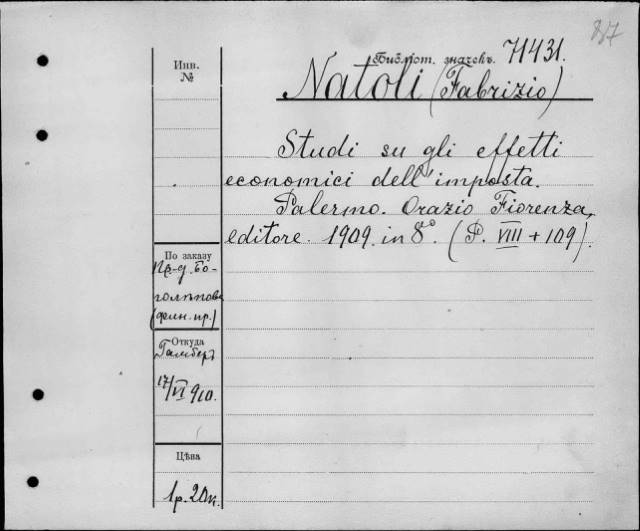 87
Библіот. значекъ. 71431.
Инв.
№
Natoli (Fabrizio)
Studi su gli effetti
economici dell'imposta.
Palermo. Orazio Fiorenza,
editore. 1909. in 8º. (P. VIII + 109).
По заказу
Пр-д. Бо-
голѣпова
(фин. пр.)
Откуда
Гамберъ
17/VI 910.
Цѣна
1р. 20к.